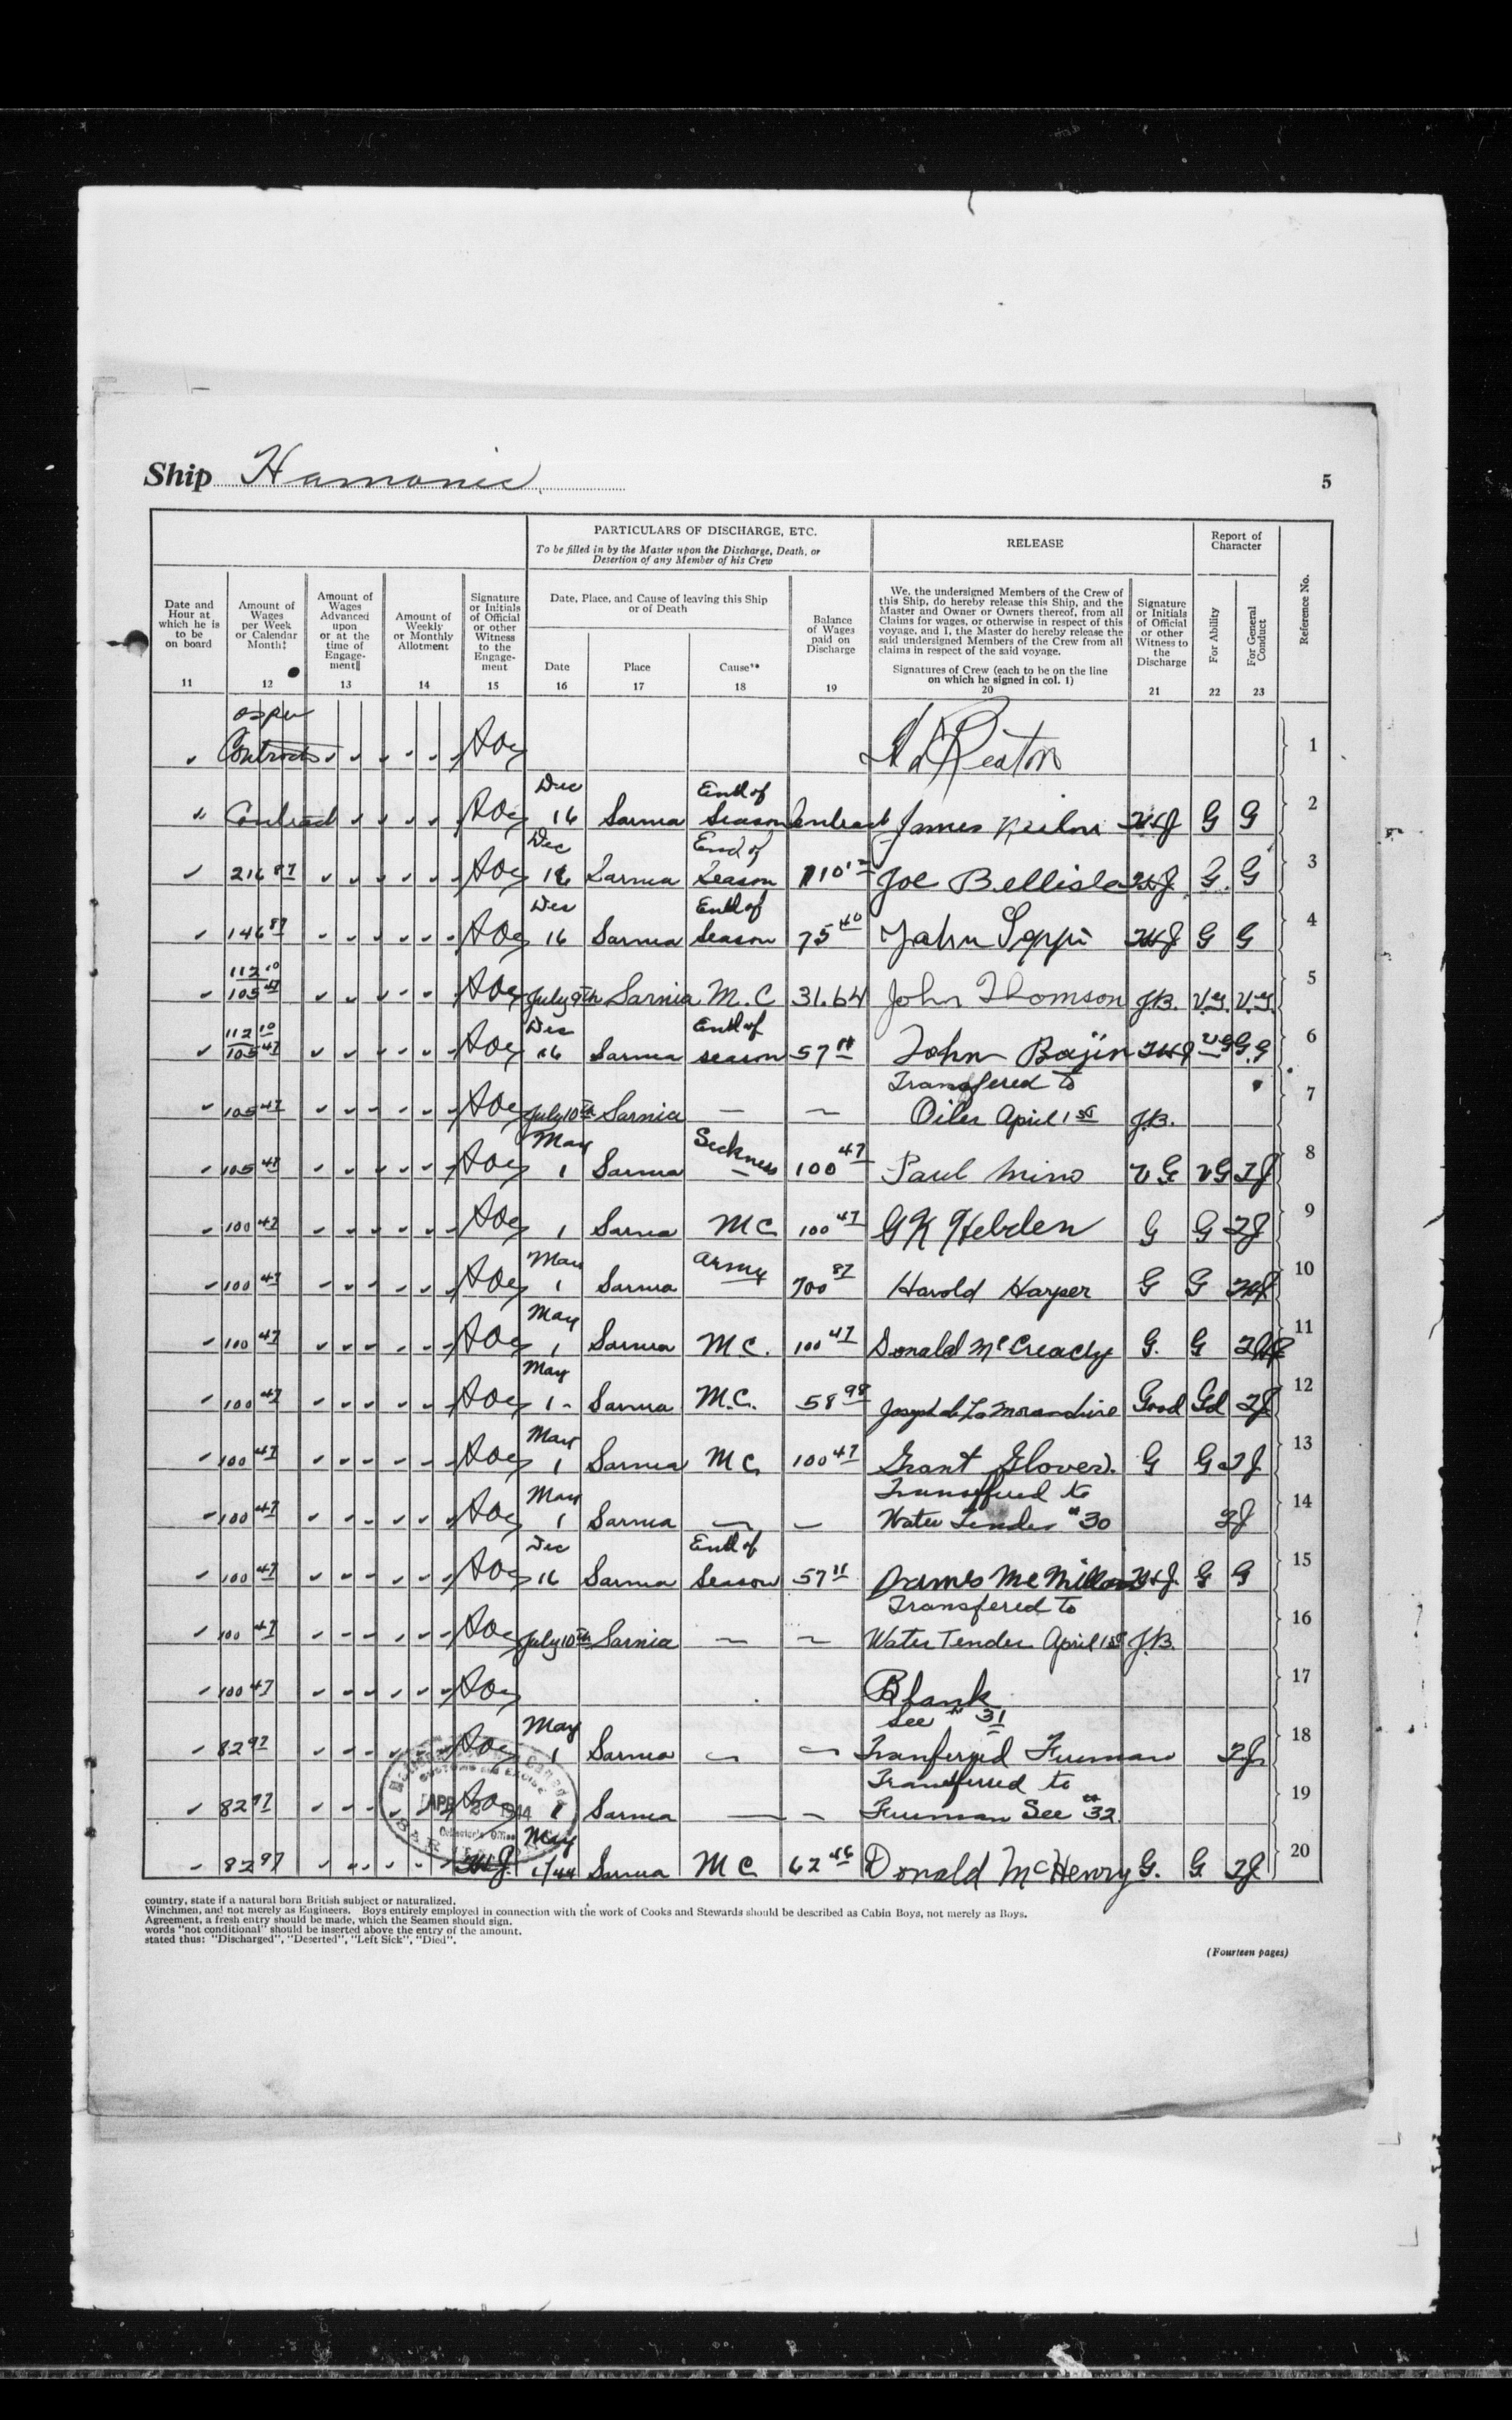 Ship Hamonic
5
PARTICULARS OF DISCHARGE, ETC.
To be filled in by the Master upon the Discharge, Death, or
Desertion of any Member of his Crew
RELEASE
Report of
Character
Date and
Hour at
which he is
to be
on board
11
Amount of
Wages
per Week
or Calendar
Month‡
12
Amount of
Wages
Advanced
upon
or at the
time of
Engage-
ment‖
13
Amount of
Weekly
or Monthly
Allotment
14
Signature
or Initials
of Official
or other
Witness
to the
Engage-
ment
15
Date, Place, and Cause of leaving this Ship
or of Death
Date
16
Place
17
Cause**
18
Balance
of Wages
paid on
Discharge
19
We, the undersigned Members of the Crew of
this Ship, do hereby release this Ship, and the
Master and Owner or Owners thereof, from all
Claims for wages, or otherwise in respect of this
voyage, and I, the Master do hereby release the
said undersigned Members of the Crew from all
claims in respect of the said voyage.
Signatures of Crew (each to be on the line
on which he signed in col. 1)
20
Signature
or Initials
of Official
or other
Witness to
the
Discharge
21
For Ability
22
For General
Conduct
23
Reference No.
as per
Contract 1
" Contract Dec 16 Sarnia End of Season Contract James G G 2
216 87 Dec 16 Sarnia End of Season 110 Joe Bellisle G. G 3
146 87 Dec 16 Sarnia End of Season 75 40 John G G 4
112 10
105 47 July 9th Sarnia M.C 31.64 John Thomson J.B. V.G. V.G. 5
112 10
105 47 Dec 16 Sarnia End of season 57 11 John 6
105 47 July 10th Sarnia — — Transfered to Oiler April 1st J.B. 7
105 47 May 1 Sarnia Sickness 100 47 Paul V G VG 8
100 47 1 Sarnia M C 100 47 G K Hebden G G 9
100 47 May 1 Sarnia Army Harold Harper G G 10
100 47 May 1 Sarnia M C. 100 47 Donald McCready G. G 11
100 47 May 1 - Sarnia M.C. 58 98 Joseph de La Morandiere Good Gd 12
100 47 May 1 Sarnia M C 100 47 Grant Glover G G 13
100 47 May 1 Sarnia — — Transfered to Water Tender #30 14
100 47 Dec 16 Sarnia End of Season 57 11 James McMillan G G 15
100 47 July 10th Sarnia — — Transfered to Water Tender April 1st J.B. 16
100 47 Blank 17
82 97 May 1 Sarnia — — See # 31 Tranferred Fireman 18
82 97 1 Sarnia — — Transferred to Fireman See #32 19
82 97 May 1/44 Sarnia M C 62 46 Donald McHenry G. G 20
CUSTOMS AND EXCISE
APR 1944
Collector's Office
country, state if a natural born British subject or naturalized.
Winchmen, and not merely as Engineers. Boys entirely employed in connection with the work of Cooks and Stewards should be described as Cabin Boys, not merely as Boys.
Agreement, a fresh entry should be made, which the Seamen should sign.
words "not conditional" should be inserted above the entry of the amount.
stated thus: "Discharged", "Deserted", "Left Sick", "Died".
(Fourteen pages)